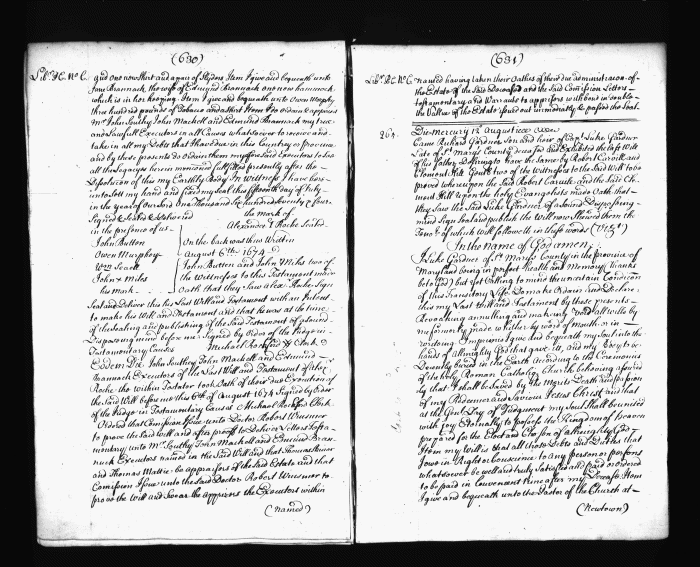 (630)
Lib.r H.C. No C.
and one new shirt and a pair of Slyders Item I give and bequeath unto
Jane Brannock the wife of Edmund Brannock one new hammock
which is in her keeping Item I give and bequeath unto Owen Murphy
three hundred pounds of Tobacco and a shirt Item I do ordain & appoint
Mr John Southy John Mackell and Edmund Brannock my true
and Lawfull Executors in all Causes whatsoever to receive and
take in all my Debts that I have due in this Country or province
and by these presents do ordain them my Executors to see
all the Legacyes herein mentioned fullfilled presently after the
Dissolution of this my Earthly Body In witness I have here
unto sett my hand and fixed my seal this fifteenth day of July
in the year of our Lord One Thousand Six hundred seventy & four
Signed Sealed & Delivered the mark of
in the presence of us Alexander Roche Sealed
John Button On the back was thus written
Owen Murphey August 6th 1674
Wm Sewell John Button and John Miles two of
John Miles the Witnesses to this Testament made
his mark Oath that they saw Alex. Roche Sign
Seal and Deliver this his Last Will and Testament with an Intent
to make his Will and Testament and that he was at the time
of the Sealing and publishing of the said Testament of a Sound
Disposing mind before me Signed by Order of the Judge in
Testamentary Causes Michael Rochford Clerk
Eodem Die John Southey John Mackell and Edmund
Brannock Executors of the Last Will and Testament of Alex.
Roche the within Testator took Oath of their due Execution of
the said Will before us this 6th of August 1674 Signed by Order
of the Judge in Testamentary Causes Michael Rochford Clerk
Ordered that Comission Issue unto Doctor Robert
to prove the said will and after proof to Deliver Letters Testa
mentary unto Mr Southey John Mackell and Edmund Bran
nock Executors named in the said Will and that Thomas
and Thomas be appraisers of the said Estate and that
Comission Issue unto the said Doctor Robert to
prove the Will and Swear the apprizers the Executors within
(Named)
(631)
Lib.r H.C. No C.
Named having taken their Oathes of their due administration of
the Estate of the said Deceased and the said Comission Letters
testamentary and Warrants to apprizers with bond in double
the Value of the Estate issued out immediately & passed the Seal
264. Die Mercury 12 August
Came Richard Gardner Son and heir of Capt Luke Gardner
Late of St Marys County deceased and Exhibited the last Will
of his father Desiring to have the same by Robert Carvile and
Clement Hill Gent two of the Witnesses to the said Will to be
proved whereupon the said Robert Carvile and the said Cle
ment Hill upon the holy Evangelists made Oath that
they saw the said Luke Gardner of a Sound Disposing
mind Sign Seal and publish the Will now Shewed them the
Tenor of which Will followeth in these words (Vizt)
In the name of God amen
I Luke Gardner of St Marys County in the province of
Maryland being in perfect health and Memory (thanks
be to God) but yet Calling to mind the uncertain Condicion
of this Transitory Life Do make Ordain and Declare
this my Last Will and Testament by these presents
Revoking annulling and making Void all wills by
me formerly made whether by word of Mouth or in
writing Imprimis I give and bequeath my Soul into the
hands of Almighty God that gave itt, and my Body to be
Decently buried in the Earth According to the Ceremonies
of the holy Roman Catholic Church believing assured
ly that I shall be Saved by the Meritts Death and passion
of my Redeemer and Saviour Jesus Christ and that
at the Genl Day of Judgment my Soul shall be united
with joy Eternally to possess the Kingdom of heaven
prepared for the Elect and Chosen of almighty God
Item my Will is that all those Debts and Duties that
I owe in Right or Conscience to any person or persons
whatsoever be well and truly Satisfied and paid or ordered
to be paid in Convenient time after my Decease Item
I give and bequeath unto the Pastor of the Church at
(Newtown)